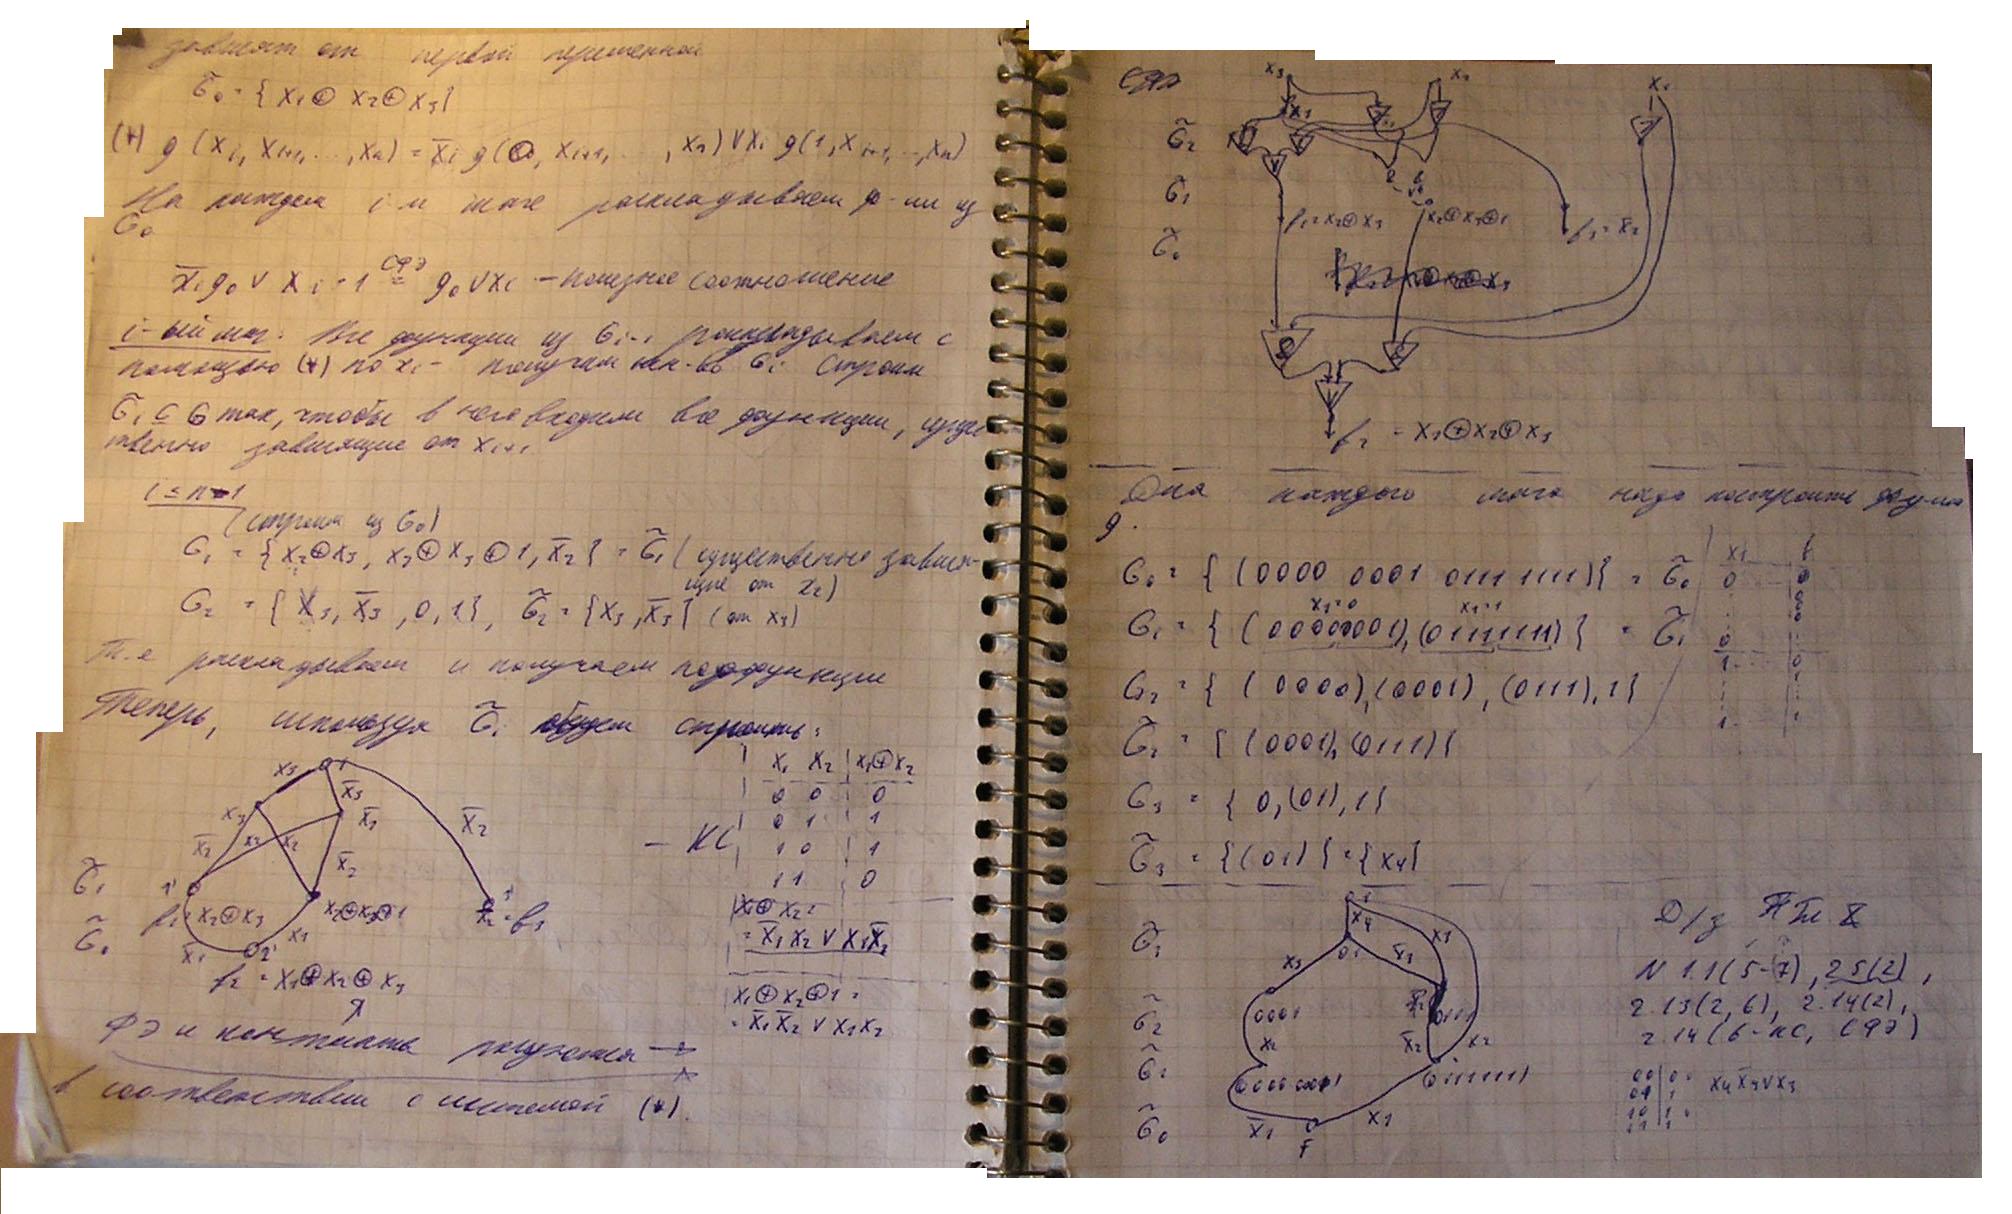 зависят от первой переменной
G̃₀ = { x₁⊕x₂⊕x₃}
(*) g(xᵢ, xᵢ₊₁, ..., xₙ) = x̄ᵢ g(0, xᵢ₊₁, ..., xₙ) ∨ xᵢ g(1, xᵢ₊₁, ..., xₙ)
На каждом i-м шаге раскладываем ф-ии из
G₀
x̄ᵢ g₀ ∨ xᵢ · 1 = g₀ ∨ xᵢ – полезное соотношение
СФЭ
i-ый шаг: Все функции из Gᵢ₋₁ раскладываем с
помощью (*) по xᵢ – получим мн-во Gᵢ. Строим
G̃ᵢ ⊆ G так, чтобы в него входили все функции, сущес
твенно зависящие от xᵢ₊₁
i ≤ n-1
(строим из G₀)
G₁ = {x₂⊕x₃, x₂⊕x₃⊕1, x̄₂} = G̃₁ (существенно завися-
щие от x₂)
G₂ = {x₃, x̄₃, 0, 1}, G̃₂ = {x₃, x̄₃} (от x₃)
Т.е раскладываем и получаем подфункции
Теперь, используя G̃ᵢ будем строить:
x₃ x̄₃ x̄₂
x₃ x̄₃
x̄₂ x₂ x₂ x̄₂
G̃₁ 1'
f₁ = x₂⊕x₃ x₂⊕x₃⊕1
G̃₀ x̄₁ 2' x₁
f₂ = x₁⊕x₂⊕x₃
– КС
x₁ x₂ x₁⊕x₂
0 0 0
0 1 1
1 0 1
1 1 0
x₁⊕x₂ =
= x̄₁x₂ ∨ x₁x̄₂
x₁⊕x₂⊕1 =
= x̄₁x̄₂ ∨ x₁x₂
ФЭ и контакты рисуются →
в соответствии с системой (*).
СФЭ x₃ x₂ x₁
G̃₂
G̃₁
f₁ = x₂⊕x₃ x₂⊕x₃⊕1 f₃ = x̄₂
G̃₀
f₂ = x₁⊕x₂⊕x₃
Для каждого шага надо построить функ
g.
G₀ = { (0000 0001 0111 1111)} = G̃₀
x₁=0 x₁=1
G₁ = { (00000001), (01111111) } = G̃₁
G₂ = { (0000), (0001), (0111), 1}
G̃₂ = { (0001), (0111)}
G₃ = { 0, (01), 1}
G̃₃ = {(01)} = {x₄}
x₁ f
0 0
0
1 0
1 1
G̃₃ x₄ 01 x₃ x̄₃ x₃
G̃₂ 0001 0111
x₂ x̄₂ x₂
G̃₁ 00000001 01111111
G̃₀ x̄₁ x₁
F
Д/з Гл X
N 1.1(5-7), 2.5(2),
2.13(2, 6), 2.14(2),
2.14(6-КС, СФЭ)
00 0
01 1
10 1
11 1
x₄x̄₃∨x₃